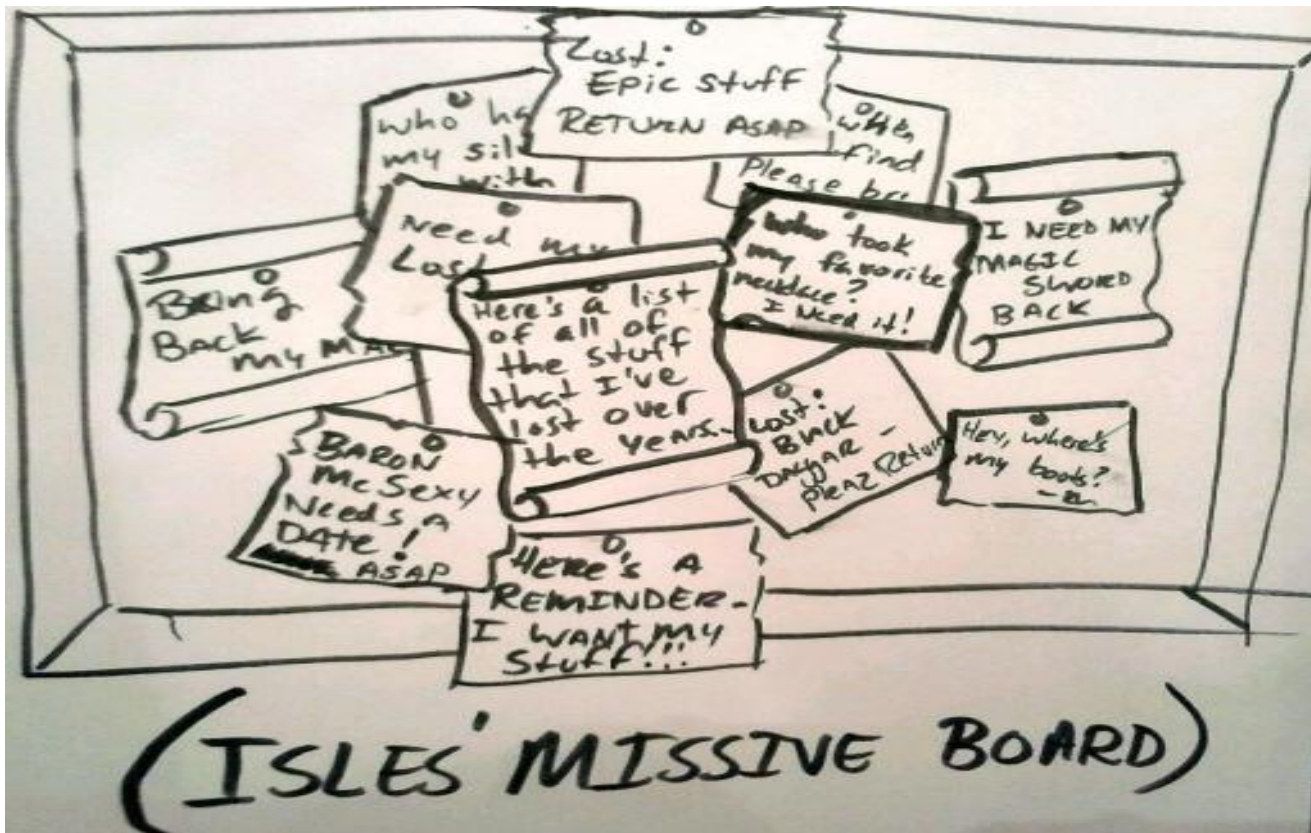 Lost:
Epic stuff
RETURN ASAP
who ha
my sil
with
when
find
Please br
Need my
Lost
who took
my favorite
necklace?
I Need it!
I NEED MY
MAGIC
SWORD
BACK
Bring
Back
my MA
Here's a list
of all of
the stuff
that I've
lost over
the years.
Lost:
Black
Daggar -
Pleaz Return
Hey, where's
my boots?
BARON
McSexy
Needs A
Date!
ASAP
Here's A
REMINDER-
I WANT MY
Stuff!!!
(ISLES' MISSIVE BOARD)